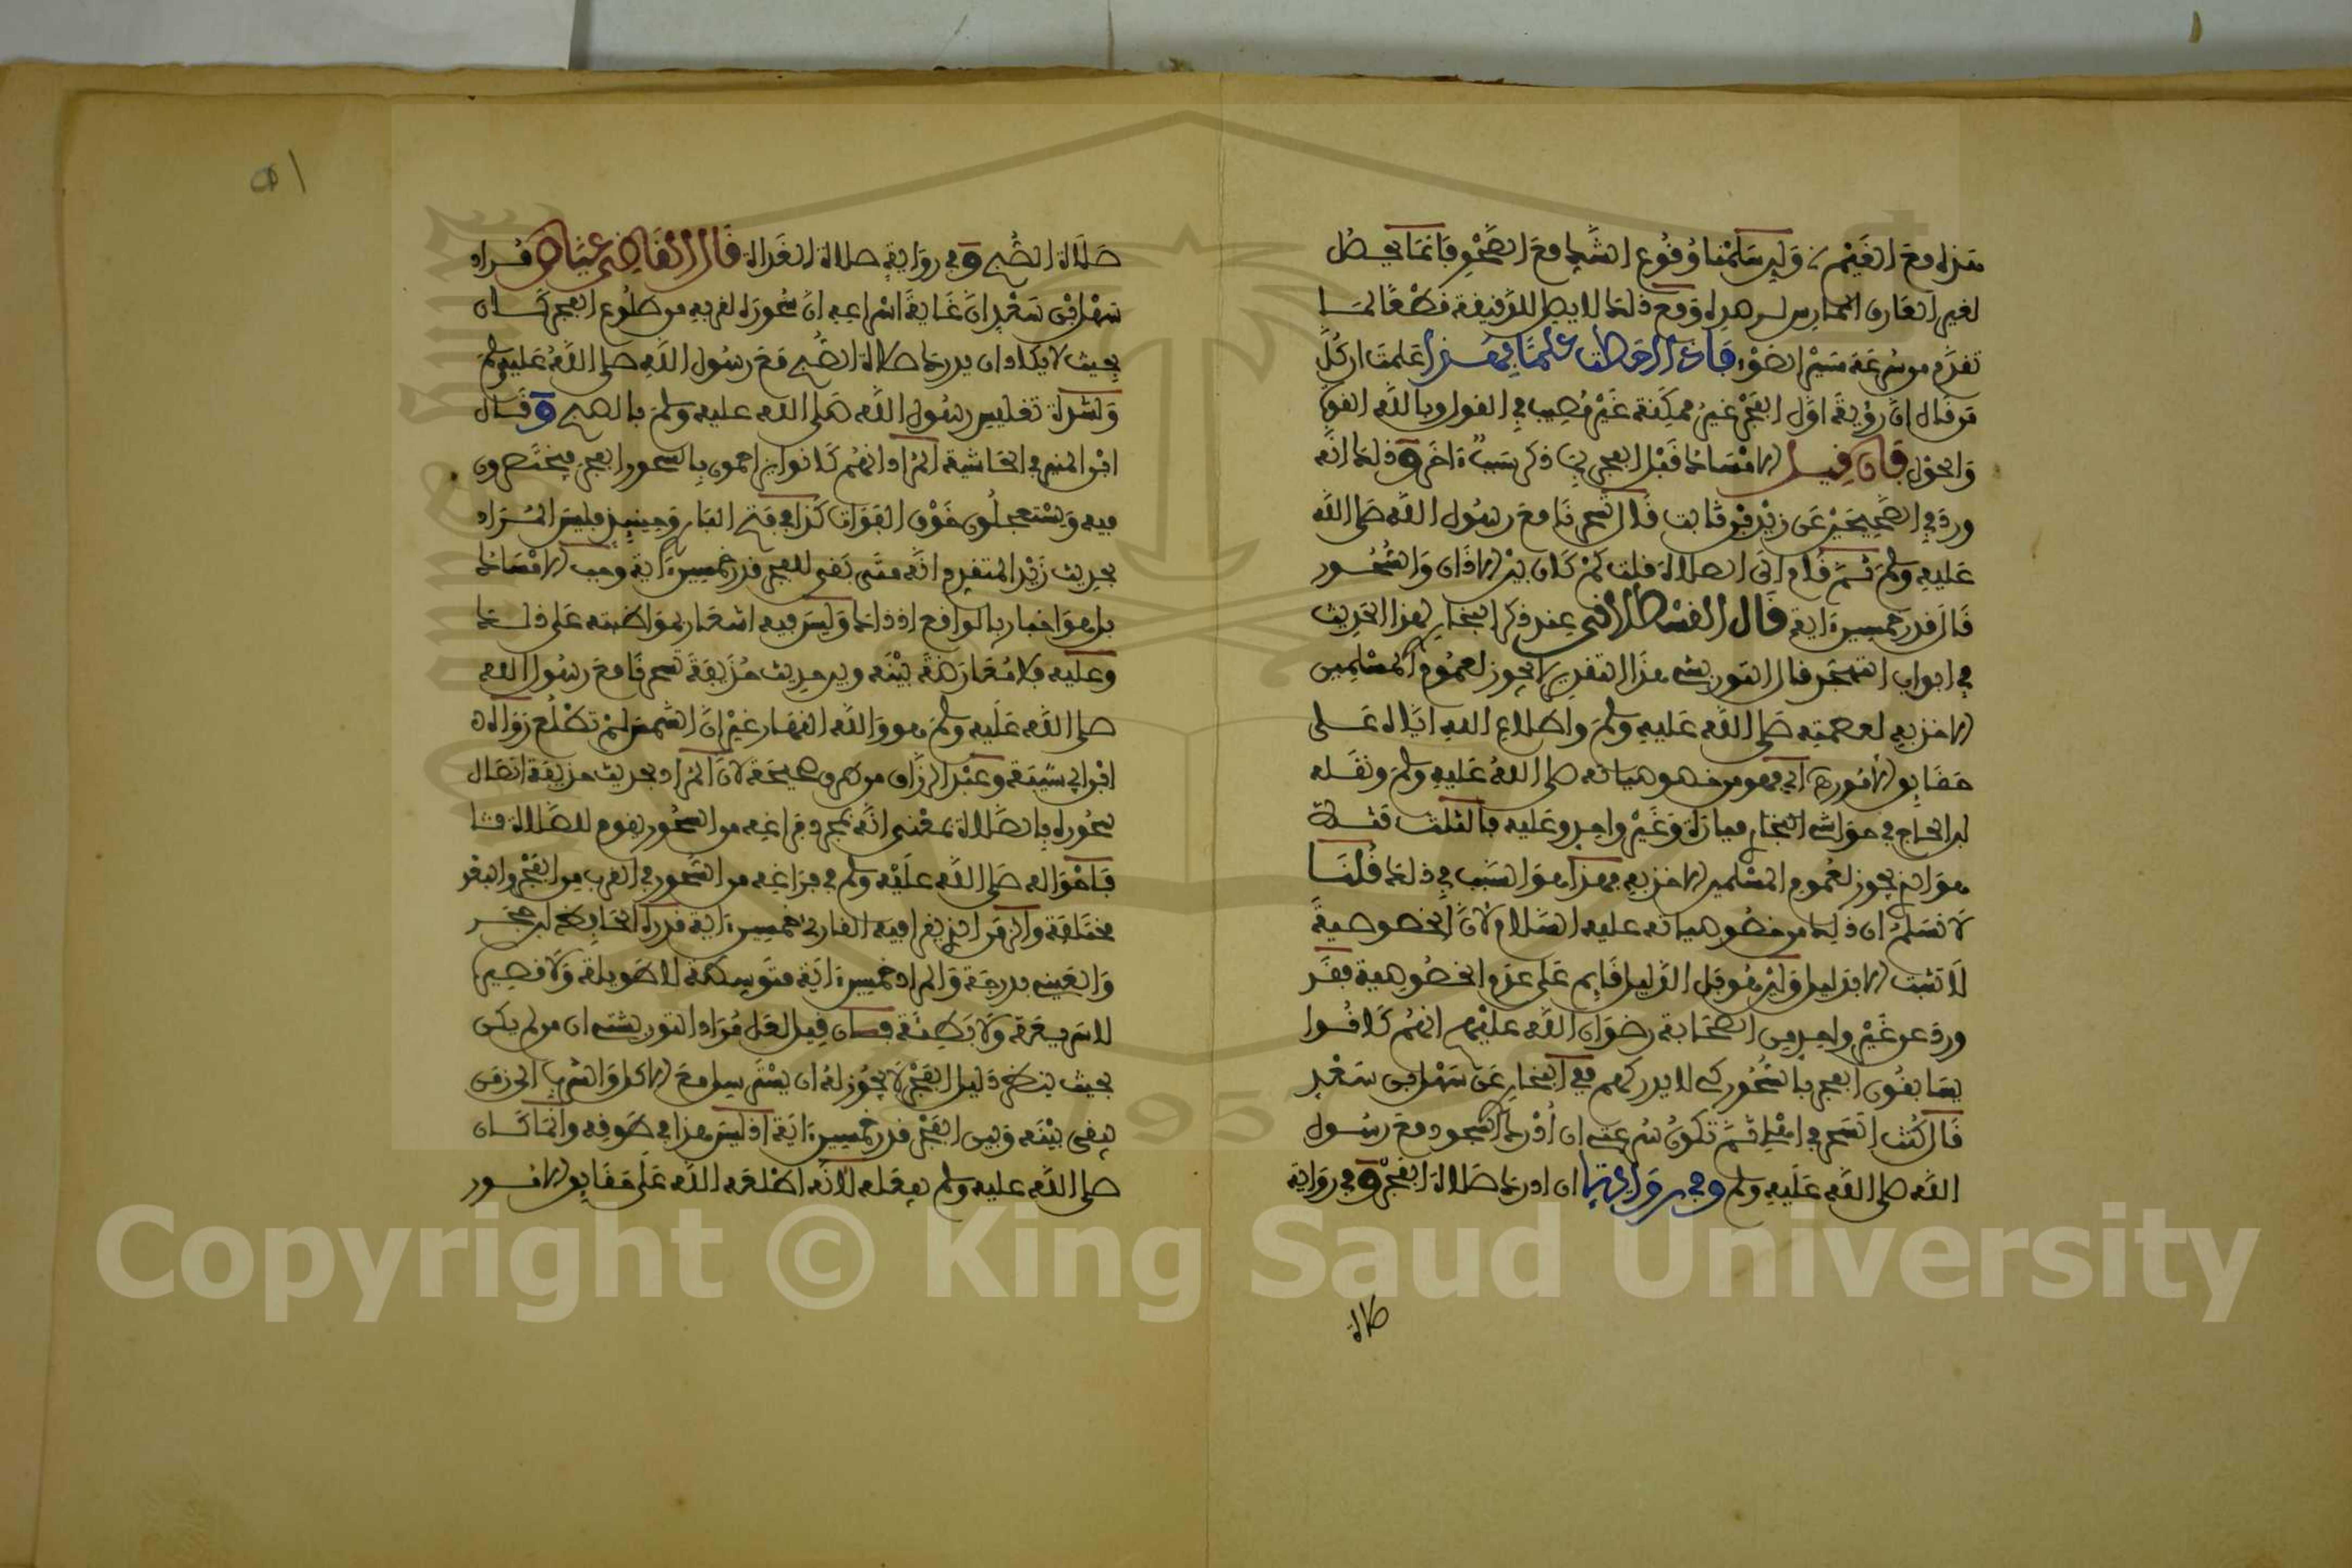 هذا مع الغيم ولين سلمنا وقوع الشك مع الصحو فإنما يحصل
لغير العارف الممارس
تقدم من سرعة سير الضوء فإذا أحطت علما بهذا علمت ان كل
من قال ان رؤية أول الفجر غير ممكنة غير مصيب في القول وبالله القوة
والحول فإن قيل الامساك قبل الفجر ذكر سببا اخر و ذلك انه
ورد في الصحيحين عن زيد بن ثابت قال تسحرنا مع رسول الله صلى الله
عليه وسلم ثم قام الى الصلاة قلت كم كان بين الاذان والسحور
قال قدر خمسين ءاية قال القسطلاني عند ذكر البخاري لهذا الحديث
في ابواب التهجد قال التوربشتي هذا التقدير لا يجوز لعموم المسلمين
الاخذ به لعصمته صلى الله عليه وسلم واطلاع الله اياه على
حقايق الامور اي فهو من خصوصياته صلى الله عليه وسلم ونقله
ابن الحاج في حواشي البخاري وغير واحد وعليه
هو انه يجوز لعموم المسلمين الاخذ به فهذا هو السبب في ذلك قلنا
لا نسلم ان ذلك من خصوصياته عليه السلام لان الخصوصية
لا تثبت الا بدليل ولين هو بل الدليل قايم على عدم الخصوصية فقد
ورد عن غير واحد من الصحابة رضوان الله عليهم انهم كانوا
يسابقون الفجر بالسحور كي لا يدركهم ففي البخاري عن سهل بن سعد
قال كنت اتسحر في اهلي ثم تكون سرعتي ان أدرك السجود مع رسول
الله صلى الله عليه وسلم وفي رواية ان ادرك صلاة الفجر و في رواية
صلاة
صلاة الصبح و في رواية صلاة الغداة قال القاضي عياض مراد
سهل بن سعد ان غاية اسراعه ان سحوره لقربه من طلوع الفجر كان
بحيث لا يكاد ان يدرك صلاة الصبح مع رسول الله صلى الله عليه وسلم
ولشدة تغليس رسول الله صلى الله عليه وسلم بالصبح و قال
ابن المنير في الحاشية المراد انهم كانوا يزاحمون بالسحور الفجر فيختصرون
فيه ويستعجلون خوف الفوات كذا في فتح الباري وحينئذ فليس المراد
بحديث زيد المتقدم انه متى بقي للفجر قدر خمسين ءاية وجب الامساك
بل هو اخبار بالواقع اذ ذاك وليس فيه اشعار بمواظبته على ذلك
وعليه فلا معارضة بينه وبين حديث حذيفة تسحرنا مع رسول الله
صلى الله عليه وسلم هو والله النهار غير ان الشمس لم تطلع رواه
ابن ابي شيبة وعبد الرزاق من طرق صحيحة لان المراد بحديث حذيفة اتصال
سحوره بالصلاة بمعنى انه بمجرد فراغه من السحور يقوم للصلاة
فاحواله صلى الله عليه وسلم في فراغه من السحور في القرب من الفجر والبعد
مختلفة والزمن الذي يقرا فيه القارئ خمسين ءاية قدره الحافظ ابن حجر
والعيني بدرجة والمراد خمسين ءاية متوسطة لا طويلة ولا قصيرة
لا سريعة ولا بطيئة فإن قيل لعل مراد التوربشتي ان من لم يكن
بحيث يتضح دليل الفجر لا يجوز له ان يسترسل مع الاكل والشرب الى زمن
يبقى بينه وبين الفجر قدر خمسين ءاية اذ ليس هذا في طوقه وانما كان
صلى الله عليه وسلم يفعله لانه اطلعه الله على حقايق الامور